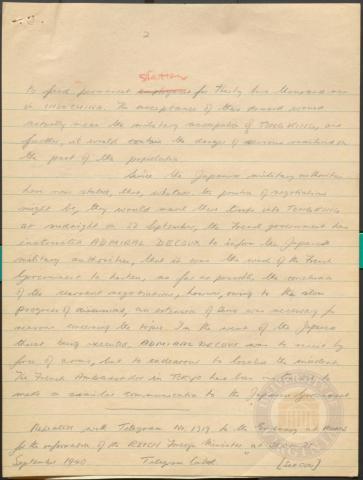 2
station
to find permanent employees for thirty five thousand men
in INDOCHINA. The acceptance of this demand would
actually mean the military occupation of TONGKING, and
further, it would contain the danger of serious
the part of the population.
Since the Japanese military authorities
have now stated, that, whatever the position of negotiations
might be, they would march their troops into TONGKING
at midnight on 22 September, the French government has
instructed ADMIRAL DECOUX to inform the Japanese
military authorities, that it was the wish of the French
Government to hasten, as far as possible, the conclusion
of the current negotiations, however, owing to the slow
progress of discussions, an extension of time was necessary for
reasons concerning the topic. In the event of the Japanese
threat being executed, ADMIRAL DECOUX was to resist by
force of arms, but to endeavour to localise the incident.
The French Ambassador in TOKYO has been instructed to
make a similar communication to the Japanese Government
with Telegram Nr. 1319 to the Embassy at
for the information of the REICH Foreign Minister at
September 1940 Telegram Control.